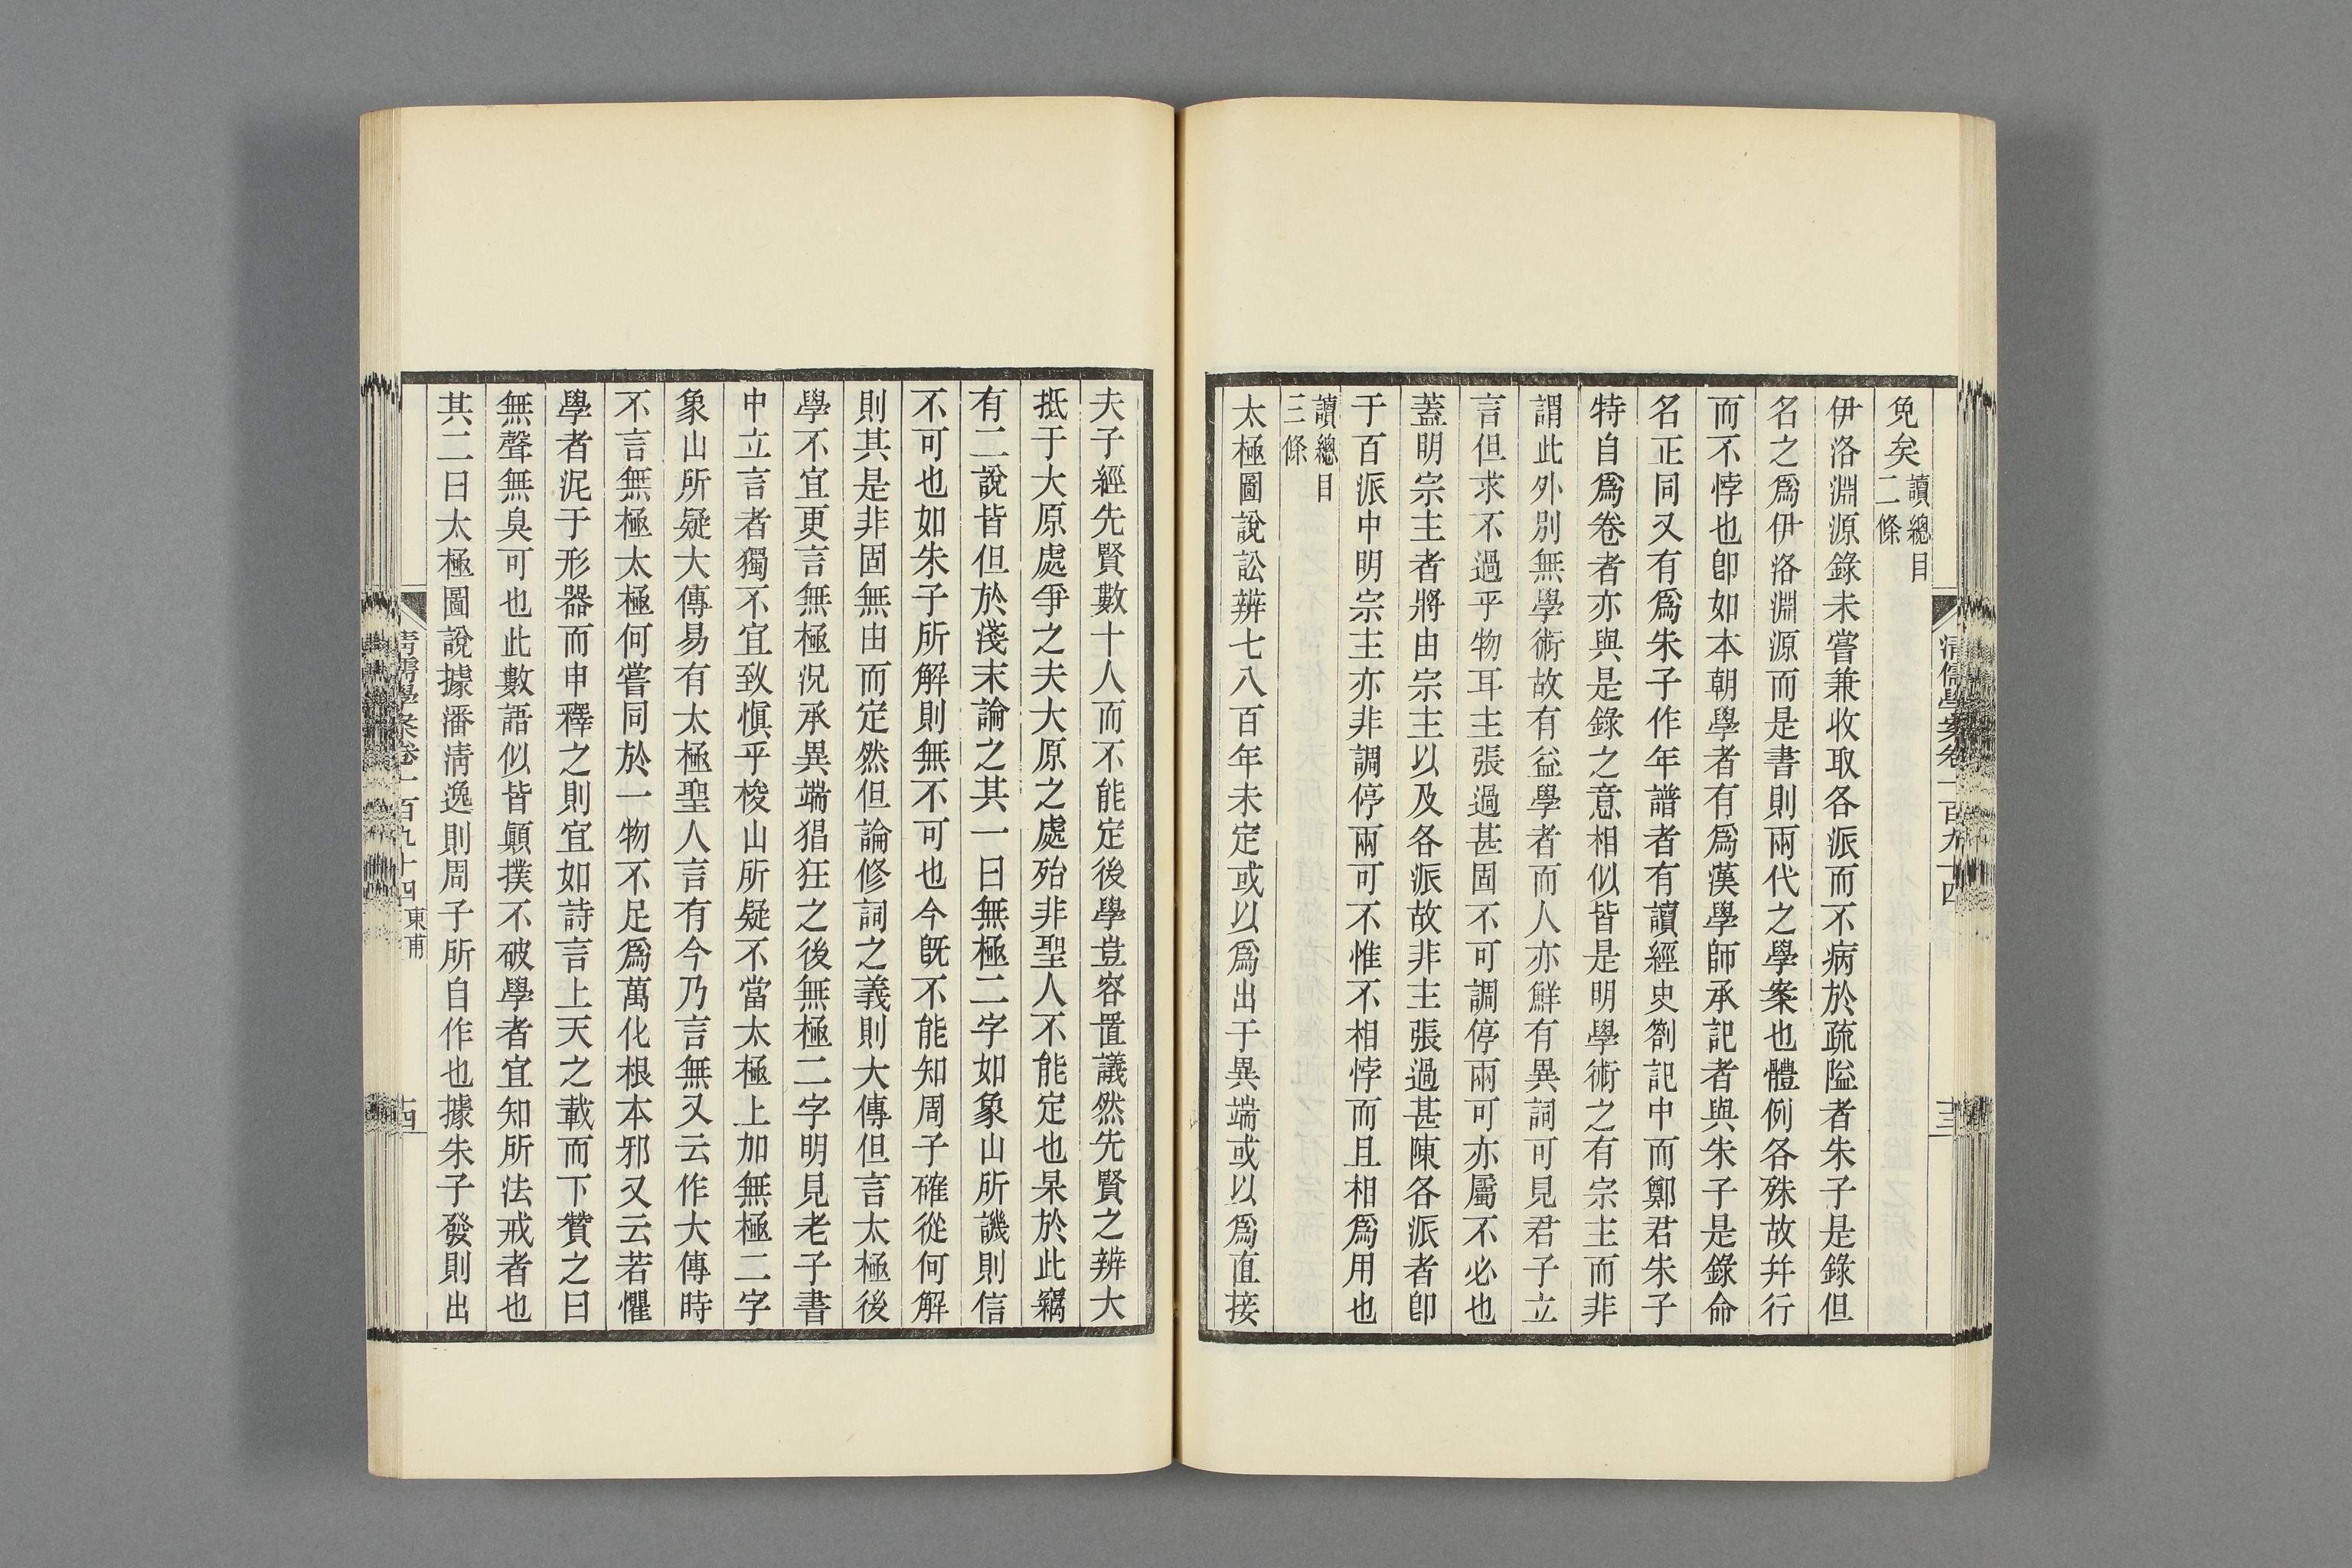 免矣讀總目二條
伊洛淵源錄未嘗兼收取各派而不病於疏隘者朱子是錄但
名之爲伊洛淵源而是書則兩代之學案也體例各殊故幷行
而不悖也卽如本朝學者有爲漢學師承記者與朱子是錄命
名正同又有爲朱子作年譜者有讀經史劄記中而鄭君朱子
特自爲卷者亦與是錄之意相似皆是明學術之有宗主而非
謂此外別無學術故有益學者而人亦鮮有異詞可見君子立
言但求不過乎物耳主張過甚固不可調停兩可亦屬不必也
蓋明宗主者將由宗主以及各派故非主張過甚陳各派者卽
于百派中明宗主亦非調停兩可不惟不相悖而且相爲用也
讀總目三條
太極圖說訟辨七八百年未定或以爲出于異端或以爲直接
清儒學案卷一百九十四
十三
夫子經先賢數十人而不能定後學豈容置議然先賢之辨大
抵于大原處爭之夫大原之處殆非聖人不能定也杲於此竊
有二說皆但於淺末論之其一曰無極二字如象山所譏則信
不可也如朱子所解則無不可也今旣不能知周子確從何解
則其是非固無由而定然但論修詞之義則大傳但言太極後
學不宜更言無極況承異端猖狂之後無極二字明見老子書
中立言者獨不宜致愼乎梭山所疑不當太極上加無極二字
象山所疑大傳易有太極聖人言有今乃言無又云作大傳時
不言無極太極何嘗同於一物不足爲萬化根本邪又云若懼
學者泥于形器而申釋之則宜如詩言上天之載而下贊之曰
無聲無臭可也此數語似皆顚撲不破學者宜知所法戒者也
其二曰太極圖說據潘淸逸則周子所自作也據朱子發則出
清儒學案卷一百九十四 東甫
十四